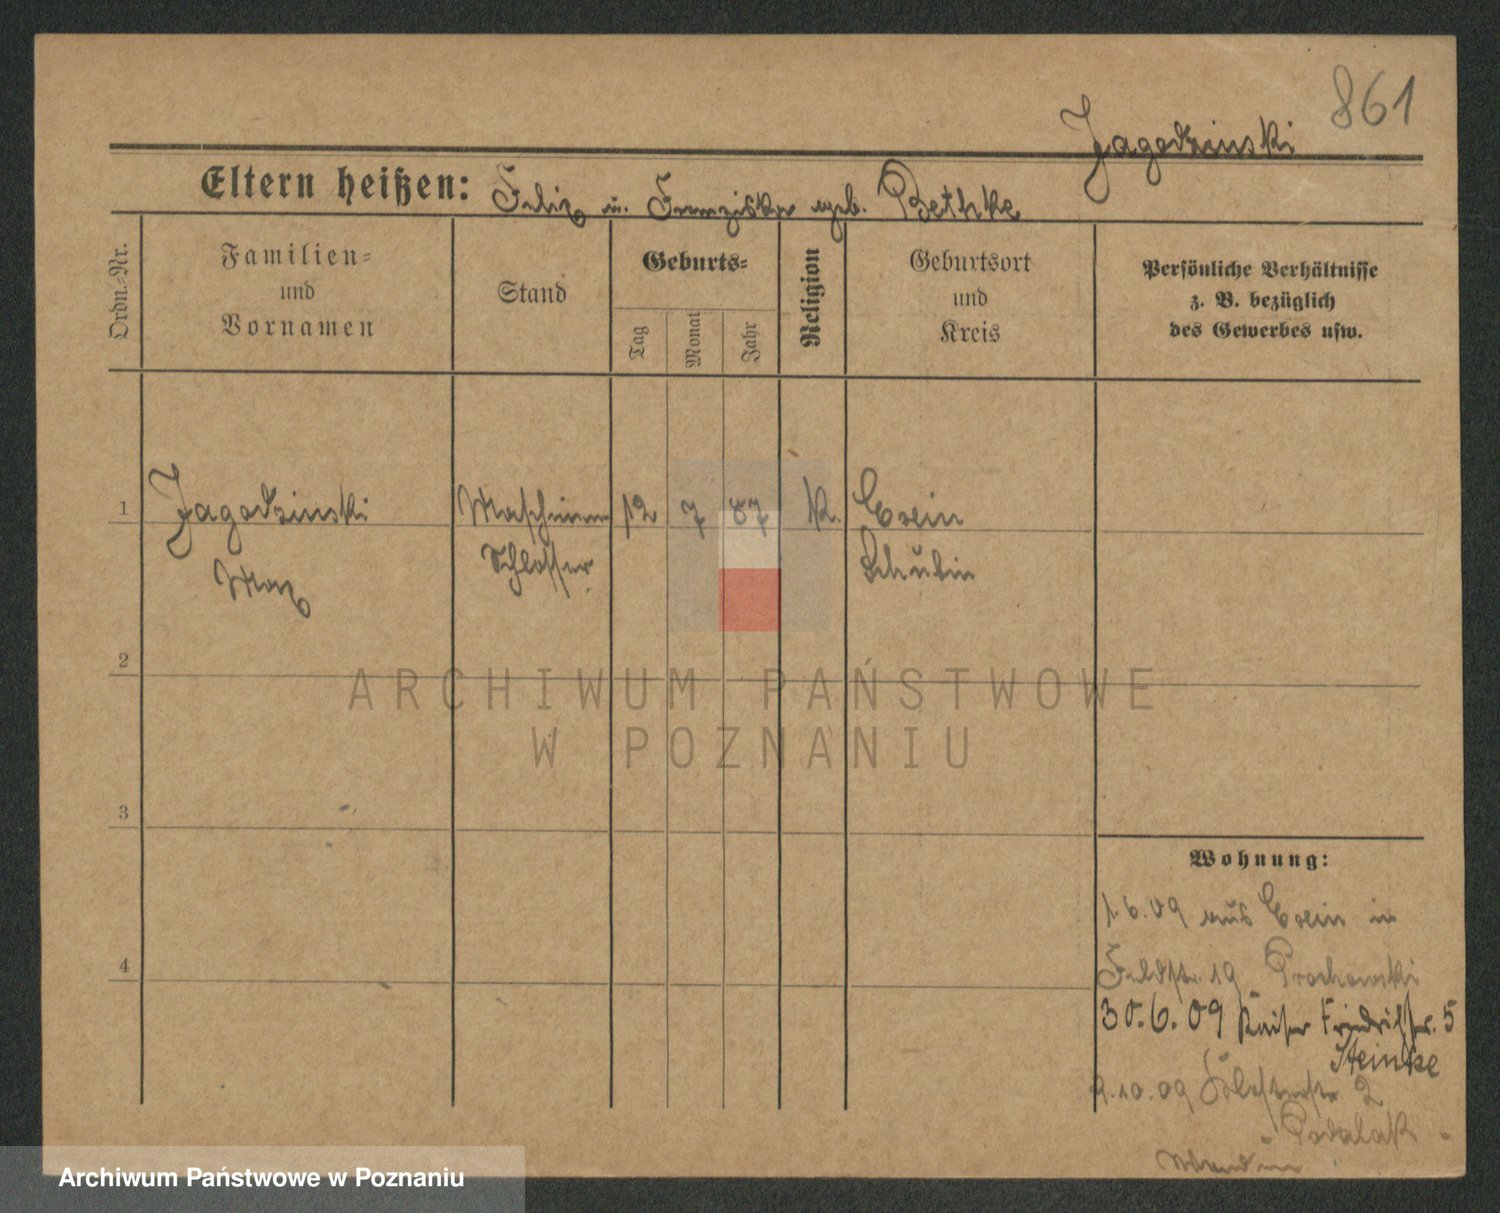 861
Jagodzinski
Eltern heißen: Felix u. Franziska geb. Bethke
Ordn.-Nr.
Familien-
und
Vornamen
Stand
Geburts-
Tag
Monat
Jahr
Religion
Geburtsort
und
Kreis
Persönliche Verhältnisse
z. B. bezüglich
des Gewerbes usw.
1
Jagodzinski
Max
Maschinen
Schlosser
12
7
87
K.
Exin
Schubin
2
3
4
Wohnung:
1.6.09 aus Exin in
Feldstr. 19 Prochowski
30.6.09 Kaiser Friedrichstr. 5
Steinke
9.10.09 2
ARCHIWUM PAŃSTWOWE
W POZNANIU
Archiwum Państwowe w Poznaniu